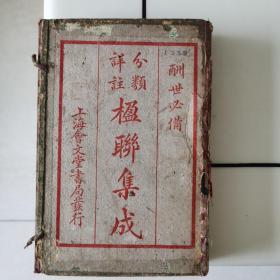 酬世必備
分類
詳註
楹聯集成
上海會文堂書局發行